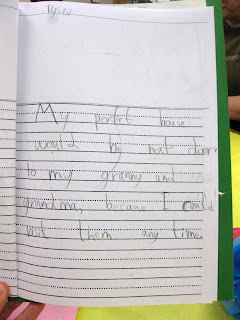 Tyler
My perfect house
would be next door
to my granny and
grandma, because I could
visit them any time.